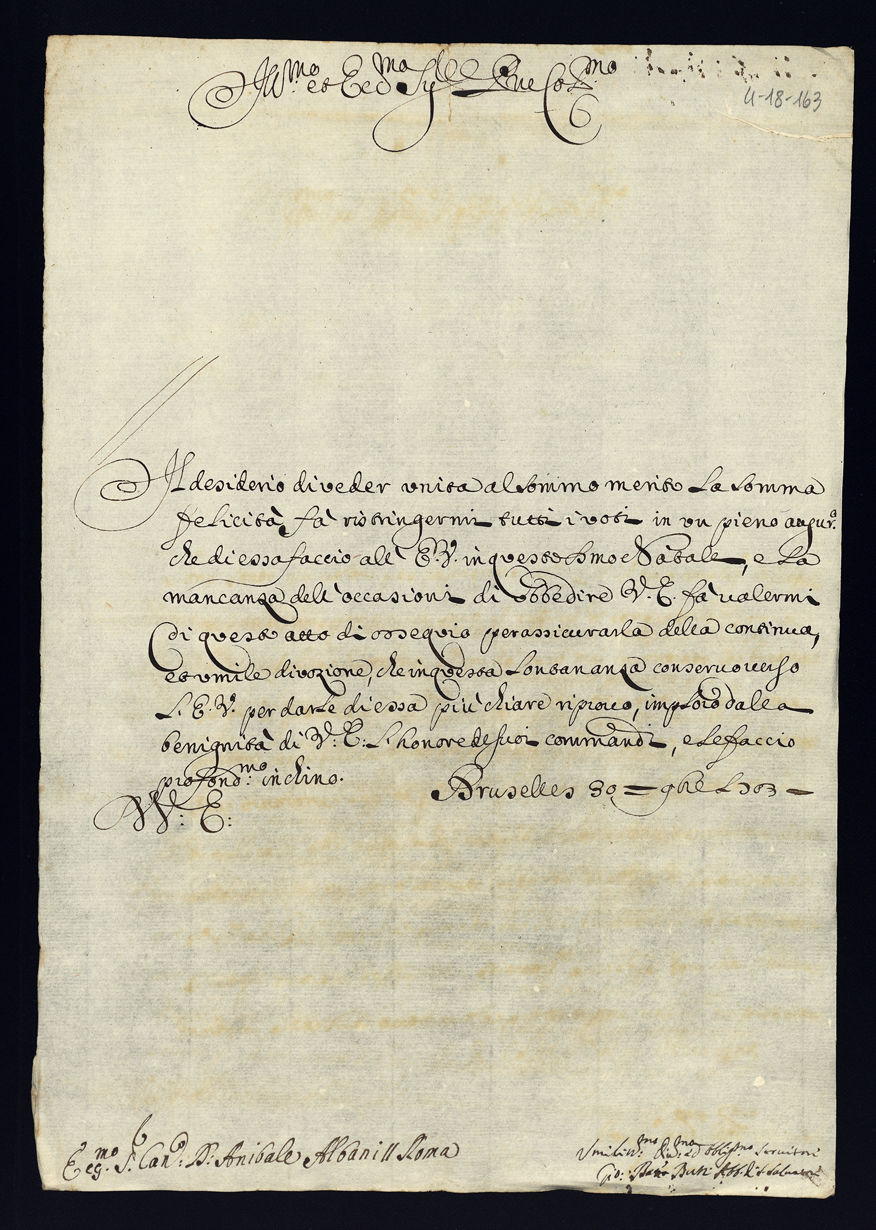 Ill.mo et Ecc.mo Sig.re P.ne Col.mo
4-18-163
Il desiderio di veder unita al sommo merito la somma
felicità, fà ristringermi tutti i voti in un pieno augur.o
che di essa faccio all' E.V. in questo s.mo Natale, e la
mancanza dell' occasioni di obbedire V.E. fà ualermi
di questo atto di ossequio per assicurarla della continua,
et umile divozione, che in questa lontananza conseruo uerso
l' E.V. per darle di essa più chiare riproue, imploro dalla
benignità di V.E. l'honore de suoi commandi, e le faccio
profond.mo inchino. Bruselles 30 = 9bre 1703 –
V.E:
S.r Car.l D. Anibale Albani // Roma
Umiliss.mo Diu.mo ed obblig.mo Seruitore
Gio: Batta Buti